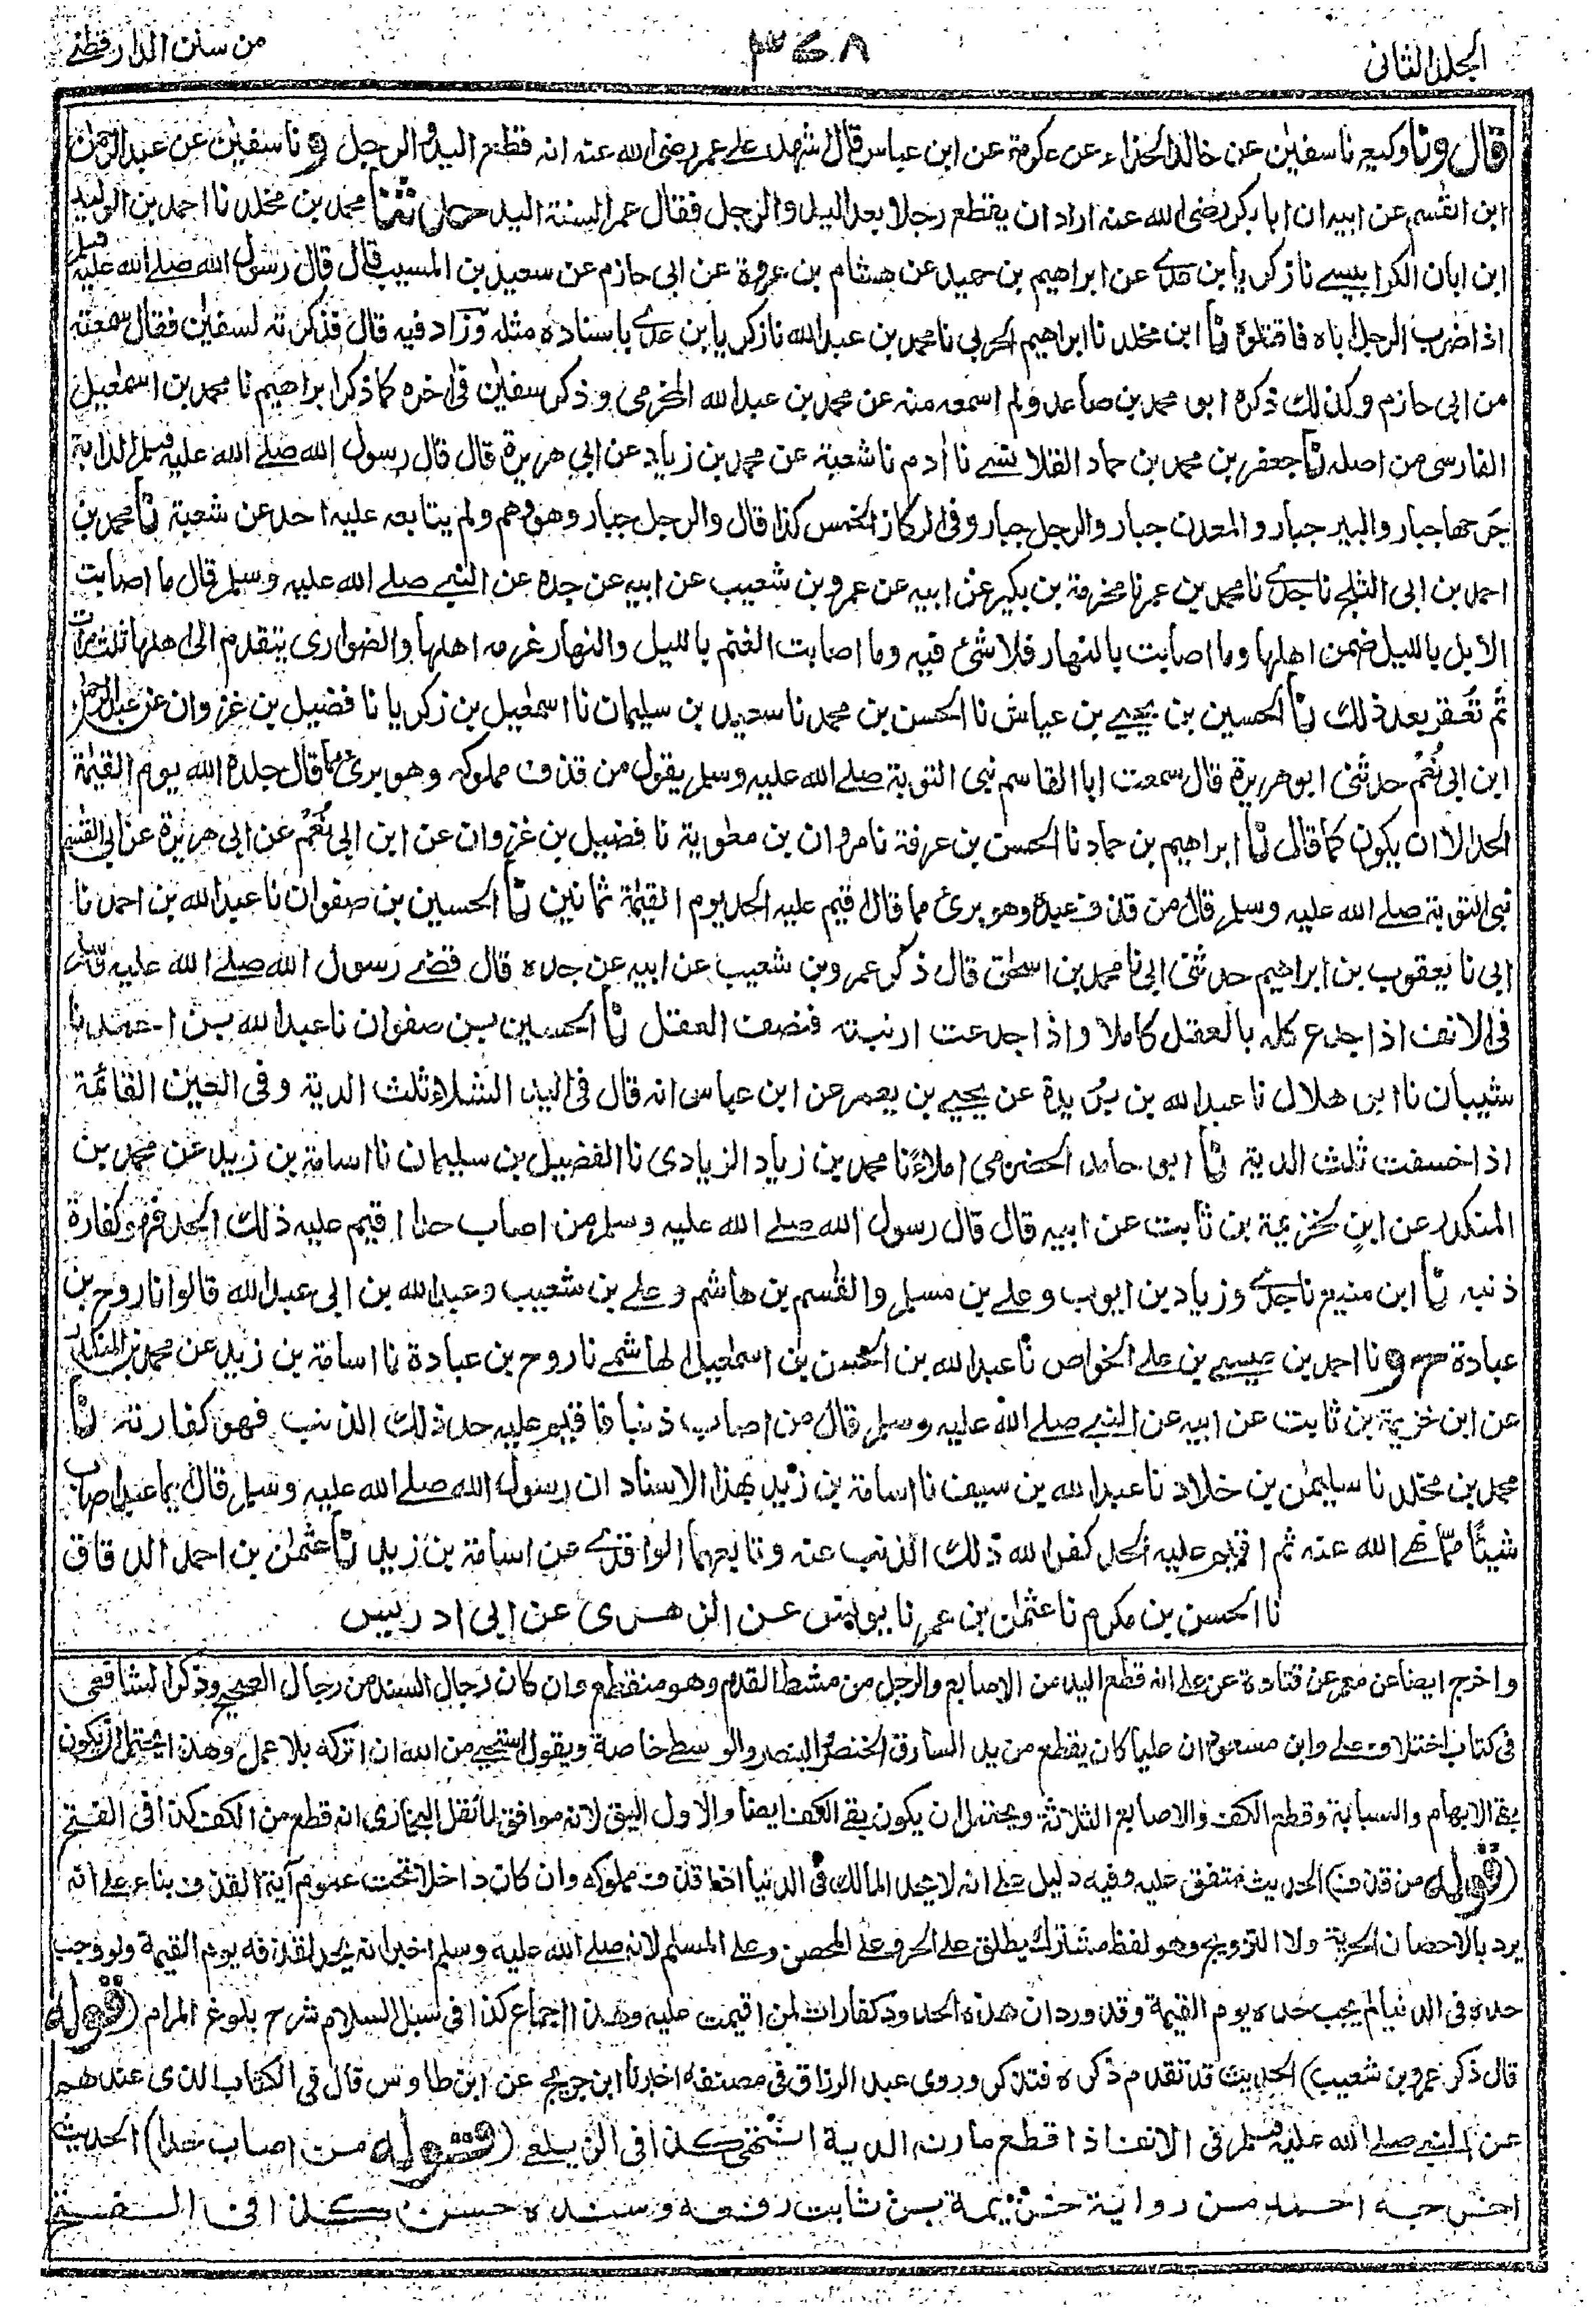 المجلد الثانى
٣٤٨
من سنن الدارقطنے
قال ونا وكيع نا سفيٰن عن خالد الحذاء عن عكرمة عن ابن عباس قال شهدت علے عمر رضى الله عنه انه قطع اليد والرجل و نا سفيٰن عن عبد الرحمٰن
ابن القٰسم عن ابيه ان ابا بكر رضى الله عنه اراد ان يقطع رجلا بعد اليد والرجل فقال عمر السنة اليد حدثنا محمد بن مخلد نا احمد بن الوليد
ابن ابان الكرابيسے نا زكريا بن عدے عن ابراهيم بن حميد عن هشام بن عروة عن ابى حازم عن سعيد بن المسيب قال قال رسول الله صلے الله عليه وسلم
اذا ضرب الرجل اباه فاقتلوه نا ابن مخلد نا ابراهيم الحربى نا محمد بن عبد الله نا زكريا بن عدے باسناده مثله وزاد فيه قال فذكرته لسفيٰن فقال سمعته
من ابى حازم وكذلك ذكره ابو محمد بن صاعد ولم اسمعه منه عن محمد بن عبد الله المخرمى و ذكر سفيٰن فى اخره كما ذكر ابراهيم نا محمد بن اسمٰعيل
الفارسى من اصله نا جعفر بن محمد بن حماد القلانسے نا اٰدم نا شعبة عن محمد بن زياد عن ابي هريرة قال قال رسول الله صلے الله عليه وسلم الدابة
جرحها جبار والبير جبار والمعدن جبار والرجل جبار وفى الركاز الخمس كذا قال والرجل جبار وهو وهم ولم يتابعه عليه احد عن شعبة نا محمد بن
احمد بن ابى الثلج نا جدے نا محمد بن عمر نا مخرمة بن بكير عن ابيه عن عمرو بن شعيب عن ابيه عن جده عن النبے صلے الله عليه وسلم قال ما اصابت
الابل بالليل ضمن اهلها وما اصابت بالنهار فلا شئ فيه وما اصابت الغنم بالليل والنهار غرمه اهلها والضوارى يتقدم الى اهلها ثلث مرات
ثم تعقر بعد ذلك نا الحسين بن يحيے بن عياش نا الحسن بن محمد نا سعيد بن سليمان نا اسمٰعيل بن زكريا نا فضيل بن غزوان عن عبد الرحمٰن
ابن ابى نُعْم حدثنى ابو هريرة قال سمعت ابا القاسم نبى التوبة صلے الله عليه وسلم يقول من قذف مملوكه وهو برئ مما قال جلده الله يوم القيٰمة
الحد الا ان يكون كما قال نا ابراهيم بن حماد نا الحسن بن عرفة نا مروان بن معٰوية نا فضيل بن غزوان عن ابن ابى نُعْم عن ابى هريرة عن ابى القٰسم
نبى التوبة صلے الله عليه وسلم قال من قذف عبده وهو برئ مما قال اقيم عليه الحد يوم القيٰمة ثمانين نا الحسين بن صفوان نا عبد الله بن احمد نا
ابى نا يعقوب بن ابراهيم حدثنى ابى نا محمد بن اسحٰق قال ذكر عمرو بن شعيب عن ابيه عن جده قال قضے رسول الله صلے الله عليه وسلم
فى الانف اذا جدع كله بالعقل كاملا واذا جدعت ارنبته فنصف العقل نا الحسين بن صفوان نا عبد الله بن احمد نا
شيبان نا ابو هلال نا عبد الله بن بريدة عن يحيے بن يعمر عن ابن عباس انه قال فى اليد الشلاء ثلث الدية وفى العين القائمة
اذا خسفت ثلث الدية نا ابو حامد الحضرمى املاءً نا محمد بن زياد الزيادى نا الفضيل بن سليمان نا اسامة بن زيد عن محمد بن
المنكدر عن ابن خزيمة بن ثابت عن ابيه قال قال رسول الله صلے الله عليه وسلم من اصاب حدا اقيم عليه ذلك الحد فهو كفارة
ذنبه نا ابن منيع نا جدے وزياد بن ايوب وعلے بن مسلم والقٰسم بن هاشم وعلے بن شعيب وعبد الله بن ابى عبد الله قالوا نا روح بن
عبادة ح و نا احمد بن عيسے بن علے الخواص نا عبد الله بن الحسن بن اسمٰعيل الهاشمے نا روح بن عبادة نا اسامة بن زيد عن محمد بن المنكدر
عن ابن خزيمة بن ثابت عن ابيه عن النبے صلے الله عليه وسلم قال من اصاب ذنبا فاقيم عليه حد ذلك الذنب فهو كفارته نا
محمد بن مخلد نا سليمٰن بن خلاد نا عبد الله بن سيف نا اسامة بن زيد بهذا الاسناد ان رسول الله صلے الله عليه وسلم قال ايما عبد اصاب
شيئًا مما نهے الله عنه ثم اقيم عليه الحد كفر الله ذلك الذنب عنه وتابعهما الواقدے عن اسامة بن زيد نا عثمٰن بن احمد الدقاق
نا الحسن بن مكرم نا عثمٰن بن عمر نا يونس عن الزهرى عن ابى ادريس
واخرج ايضا عن معمر عن قتادة عن علے انه قطع اليد من الاصابع والرجل من مشط القدم وهو منقطع وان كان رجال السند من رجال الصحيح وذكر الشافعى
فى كتاب اختلاف علے وابن مسعود ان عليا كان يقطع من يد السارق الخنصر والبنصر والوسطے خاصة ويقول استحيے من الله ان اتركه بلا عمل وهذا يحتمل ان يكون
بقے الابهام والسبابة وقطع الكف والاصابع الثلاثة ويحتمل ان يكون بقے الكف ايضا والاول اليق لانه موافق لما نقل البخارى انه قطع من الكف كذا فى الفتح
(قوله من قذف) الحديث متفق عليه وفيه دليل علے انه لا يحد المالك فى الدنيا اذا قذف مملوكه وان كان داخلا تحت عموم آية القذف بناء علے انه
يرد بالاحصان الحرية ولا التزويج وهو لفظ مشترك يطلق علے الحر وعلے المحصن وعلے المسلم لانه صلے الله عليه وسلم اخبر انه يحد لقذفه يوم القيمة ولو وجب
حده فى الدنيا لم يجب حده يوم القيمة وقد ورد ان هذه الحدود كفارات لمن اقيمت عليه وهذا اجماع كذا فى سبل السلام شرح بلوغ المرام (قوله
قال ذكر عمرو بن شعيب) الحديث قد تقدم ذكره فتذكر وروى عبد الرزاق فى مصنفه اخبرنا ابن جريج عن ابن طاوس قال فى الكتاب الذى عندهم
عن النبے صلے الله عليه وسلم فى الانف اذا قطع مارنه الدية انتهى كذا فى الزيلعے (قوله من اصاب حدا) الحديث
اخرجه احمد من رواية خزيمة بن ثابت رفعه وسنده حسن كذا فى الفتح